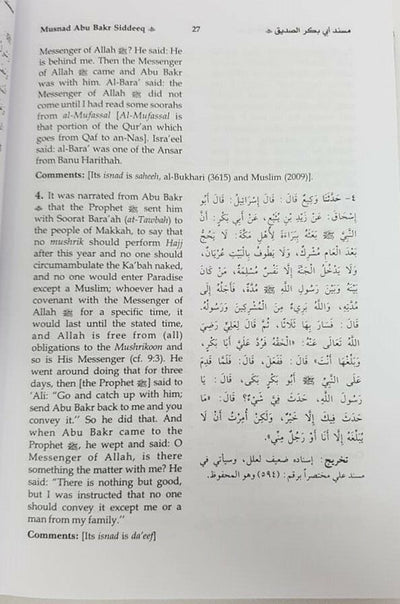 Musnad Abu Bakr Siddeeq ﷺ 27 مسند أبي بكر الصديق
Messenger of Allah ﷺ? He said: He
is behind me. Then the Messenger
of Allah ﷺ came and Abu Bakr
was with him. Al-Bara' said: the
Messenger of Allah ﷺ did not
come until I had read some soorahs
from al-Mufassal [Al-Mufassal is
that portion of the Qur'an which
goes from Qaf to an-Nas]. Isra'eel
said: al-Bara' was one of the Ansar
from Banu Harithah.
Comments: [Its isnad is saheeh, al-Bukhari (3615) and Muslim (2009)].
4. It was narrated from Abu Bakr
that the Prophet ﷺ sent him
with Soorat Bara'ah (at-Tawbah) to
the people of Makkah, to say that
no mushrik should perform Hajj
after this year and no one should
circumambulate the Ka'bah naked,
and no one would enter Paradise
except a Muslim; whoever had a
covenant with the Messenger of
Allah ﷺ for a specific time, it
would last until the stated time,
and Allah is free from (all)
obligations to the Mushrikoon and
so is His Messenger (cf. 9:3). He
went around doing that for three
days, then [the Prophet ﷺ] said to
'Ali: "Go and catch up with him;
send Abu Bakr back to me and you
convey it." So he did that. And
when Abu Bakr came to the
Prophet ﷺ, he wept and said: O
Messenger of Allah, is there
something the matter with me? He
said: "There is nothing but good,
but I was instructed that no one
should convey it except me or a
man from my family."
Comments: [Its isnad is da'eef]
٤- حَدَّثَنَا وَكِيعٌ قَالَ: قَالَ إِسْرَائِيلُ: قَالَ أَبُو
إِسْحَاقَ: عَنْ زَيْدِ بْنِ يُثَيْعٍ، عَنْ أَبِي بَكْرٍ: أَنَّ
النَّبِيَّ ﷺ بَعَثَهُ بِبَرَاءَةٌ لِأَهْلِ مَكَّةَ: لَا يَحُجُّ
بَعْدَ الْعَامِ مُشْرِكٌ، وَلَا يَطُوفُ بِالْبَيْتِ عُرْيَانٌ،
وَلَا يَدْخُلُ الْجَنَّةَ إِلَّا نَفْسٌ مُسْلِمَةٌ، مَنْ كَانَ
بَيْنَهُ وَبَيْنَ رَسُولِ اللهِ ﷺ مُدَّةٌ، فَأَجَلُهُ إِلَى
مُدَّتِهِ، وَاللهُ بَرِيءٌ مِنَ الْمُشْرِكِينَ وَرَسُولُهُ.
قَالَ: فَسَارَ بِهَا ثَلَاثًا، ثُمَّ قَالَ لِعَلِيٍّ رَضِيَ
اللهُ تَعَالَى عَنْهُ: «الْحَقْهُ فَرُدَّ عَلَيَّ أَبَا بَكْرٍ،
وَبَلِّغْهَا أَنْتَ» قَالَ: فَفَعَلَ، قَالَ: فَلَمَّا قَدِمَ
عَلَى النَّبِيِّ ﷺ أَبُو بَكْرٍ بَكَى، قَالَ: يَا
رَسُولَ اللهِ، حَدَثَ فِيَّ شَيْءٌ؟ قَالَ: «مَا
حَدَثَ فِيكَ إِلَّا خَيْرٌ، وَلَكِنْ أُمِرْتُ أَنْ لَا
يُبَلِّغَهُ إِلَّا أَنَا أَوْ رَجُلٌ مِنِّي».
تخريج: إسناده ضعيف لعلل، وسيأتي في
مسند علي مختصراً برقم: (٥٩٤) وهو المحفوظ.